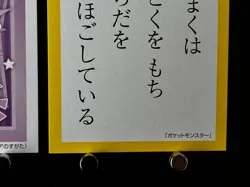 まくは
どくを もち
らだを
ほごしている
「ポケットモンスター」
アのすがた）